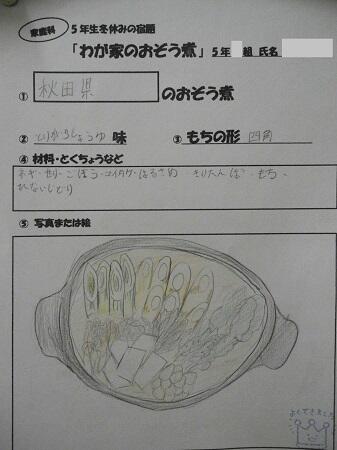 家庭科 5年生冬休みの宿題
「わが家のおぞう煮」 5年 組 氏名
① 秋田県 のおぞう煮
② とりがらしょうゆ 味 ③ もちの形 四角
④ 材料・とくちょうなど
ネギ・せり・ごぼう・マイタケ・はるさめ・きりたんぽ・もち・
ひないじどり
⑤ 写真または絵
よくできました